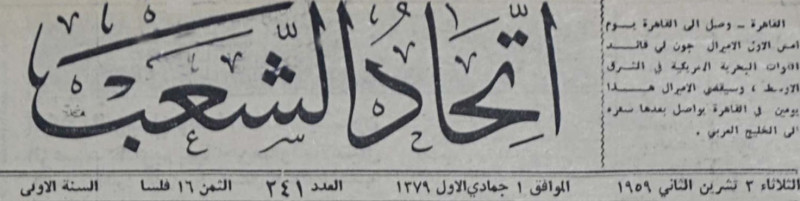 اتحاد الشعب
القاهرة - وصل الى القاهرة يوم
امس الاول الاميرال جون لي قائد
القوات البحرية الامريكية في الشرق
الاوسط ، وسيقضي الاميرال هذا
يومين في القاهرة يواصل بعدها سفره
الى الخليج العربي .
الثلاثاء ٣ تشرين الثاني ١٩٥٩ الموافق ١ جمادي الاول ١٣٧٩ العدد ٢٤١ الثمن ١٦ فلسا السنة الاولى